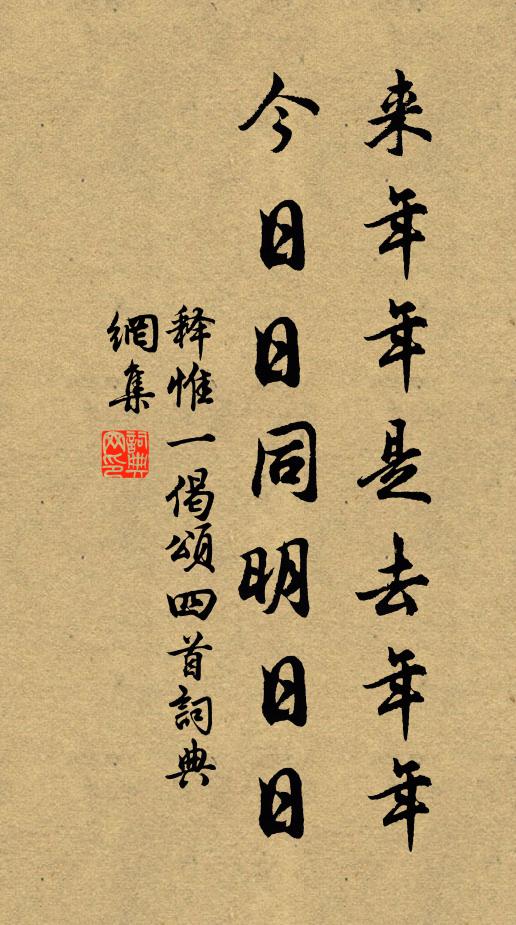 来年年是去年年
今日日同明日日
释惟一偈頌四首詞典
網集
詞典
网印